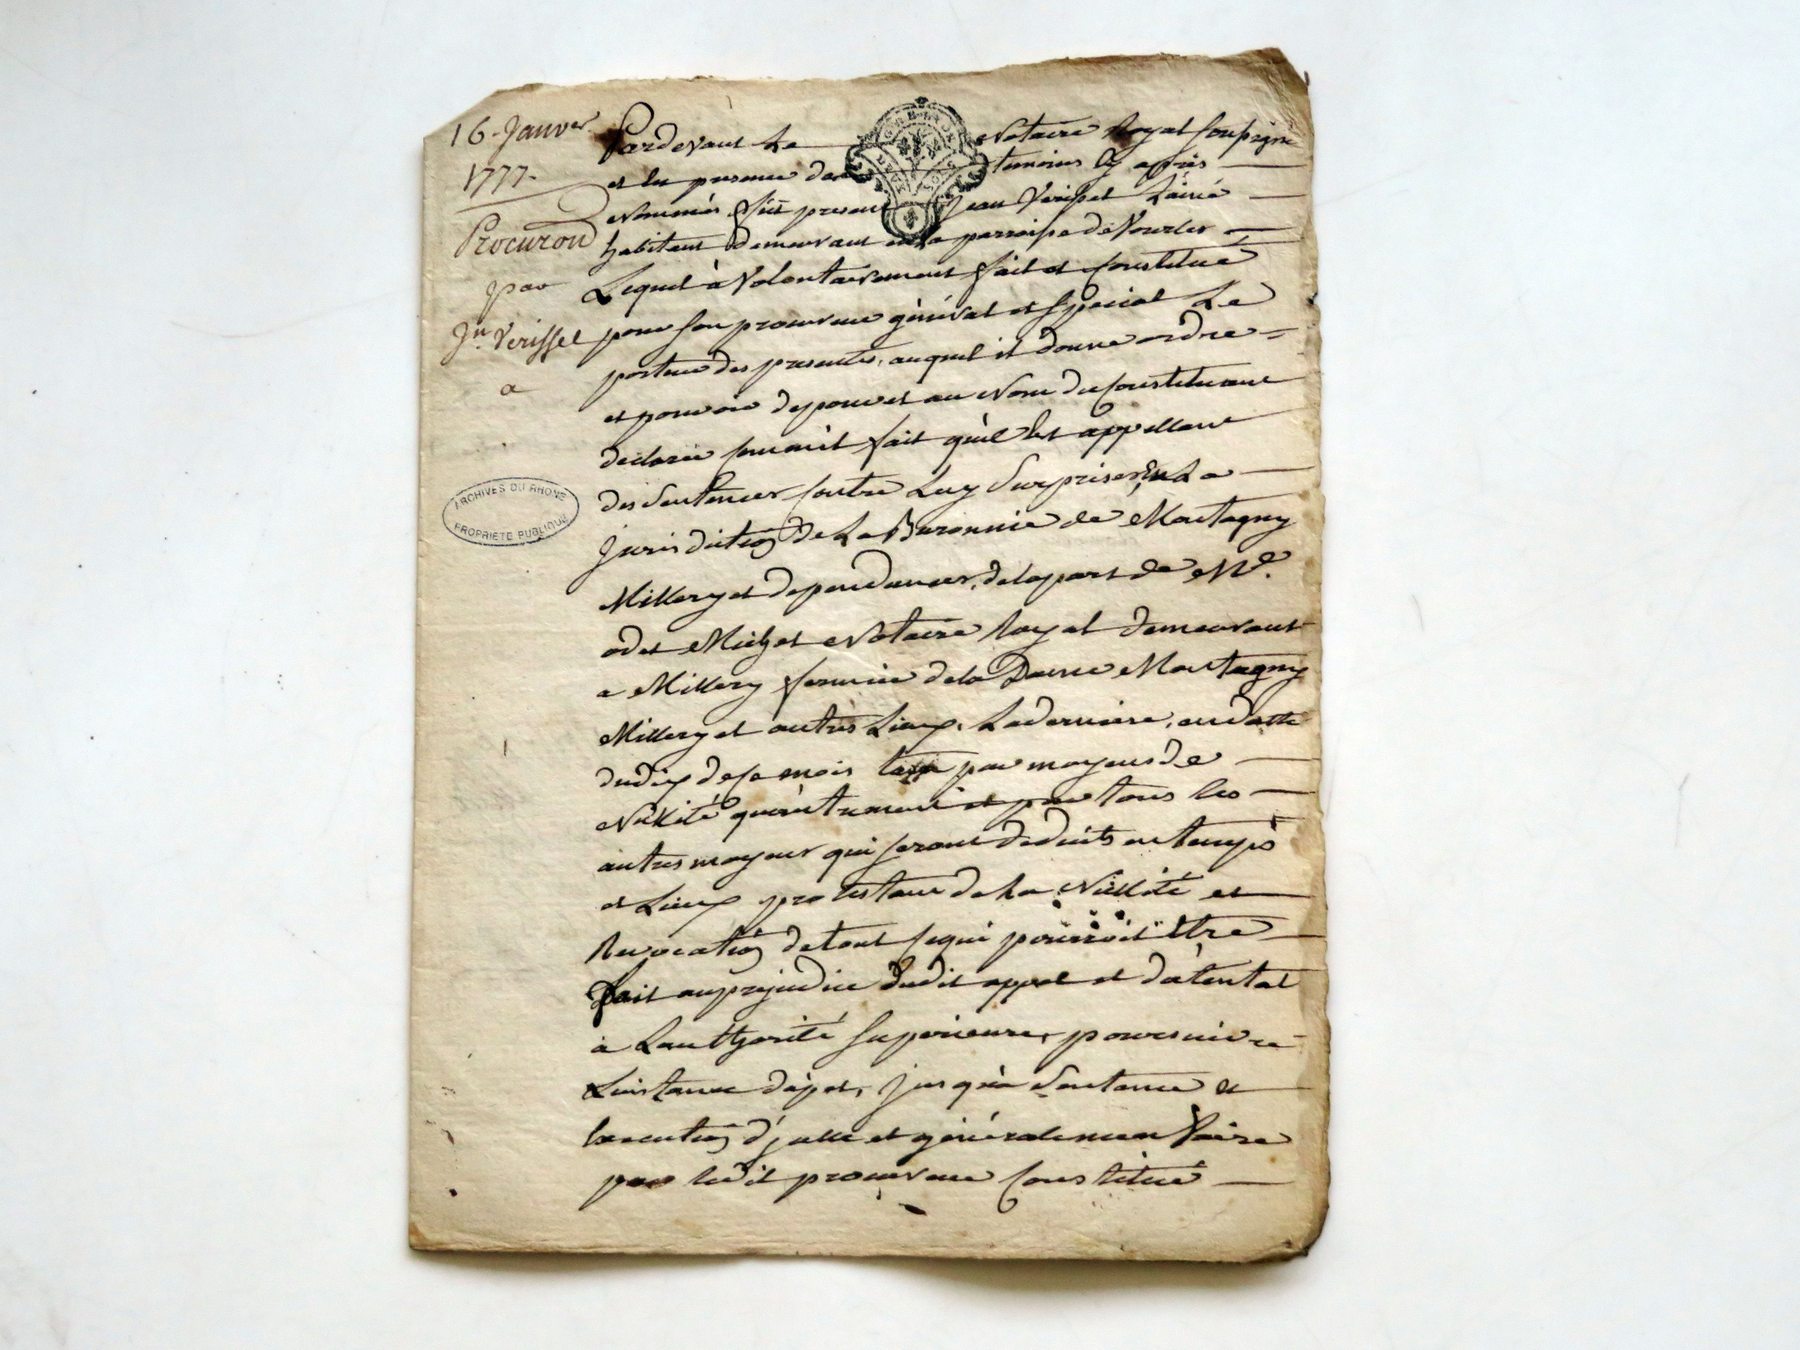 16. Janver
1777.
Procuron
par
Jn. Verissel
a
ARCHIVES DU RHONE
PROPRIETE PUBLIQUE
GNRE. LYON
Pardevant Le Notaire Royal soussigné
et en presence des temoins cy après
Nommés fut present Jean Verissel Lainé
habitant demeurant en la parroisse de Vourles
Lequel à volontairement fait et constitué
pour son procureur général et spécial Le
porteur des presentes, auquel il donne ordre
et pouvoir de pour et au Nom du constituant
declarer comme il fait qu'il est appellant
des sentences contre Luy surprises en La
Jurisdiction de La Baronnie de Montagny
Millery et dependances, de la part de Me.
odet Michet Notaire Royal demeurant
a Millery fermier de la Dame Montagny
Millery et autres Lieux, La derniere, en datte
du dix de ce mois par moyens de
Nullité qu'autrement et par tous les
autres moyens qui seront deduits en temps
et Lieux protestant de La Nullité et
Revocation de tout ce qui pourroit être
fait au prejudice dudit appel et d'atentat
à Lauthorité superieure, poursuivre
Linstance dapel, jusqu'a sentence et
execution d'jcelle et généralement faire
par ledit procureur constitué